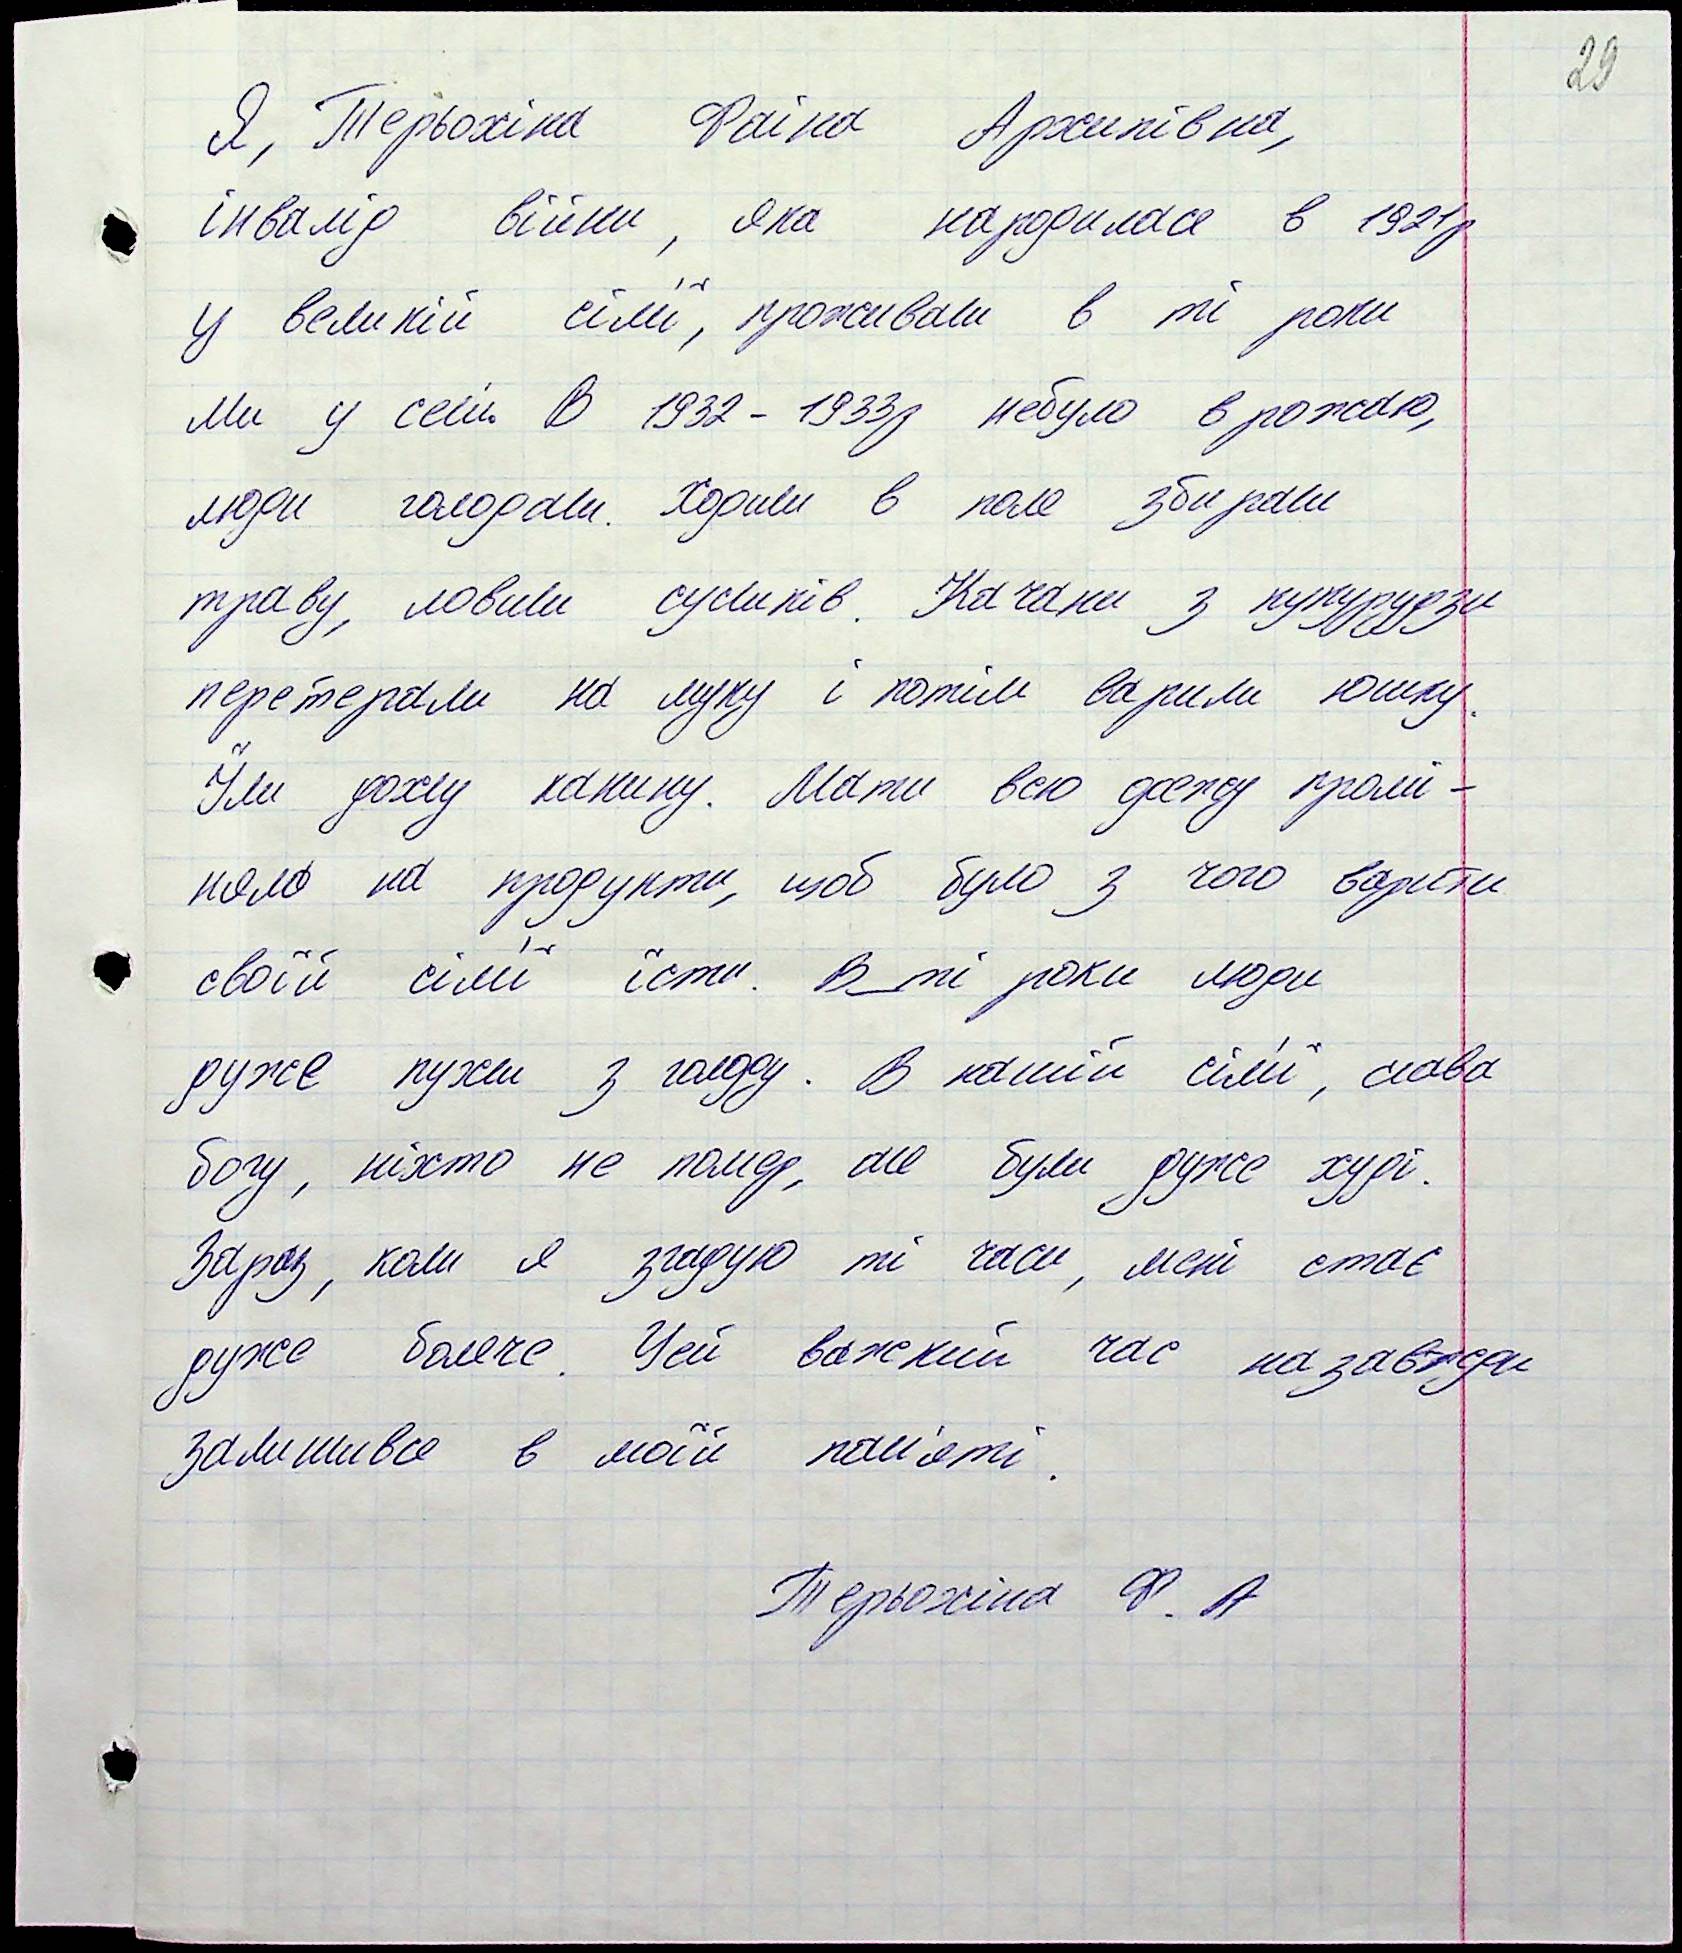 29
Я, Терьохіна Фаіна Архипівна,
інвалід війни, яка народилася в 1921р
у великій сім'ї, проживали в ті роки
ми у селі. В 1932-1933р небуло врожаю,
люди голодали. Ходили в поле збирали
траву, ловили сусликів. Качани з кукурудзи
перетерали на муку і потім варили юшку.
Їли дохлу канину. Мати всю одежду промі-
няла на продукти, щоб було з чого варити
своїй сім'ї їсти. В ті роки люди
дуже пухли з голоду. В нашій сім'ї, слава
богу, ніхто не помер, але були дуже худі.
Зараз, коли я згадую ті часи, мені стає
дуже боляче. Цей важкий час назавжди
залишився в моїй пам'яті.
Терьохіна Ф. А